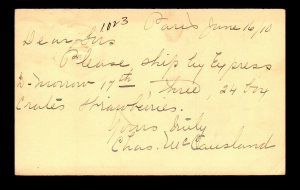 1023
Paris June 16/10
Dear Sirs
Please, ship by Express
to-morrow 17th, three, 24 box
Crates Strawberries.
Yours truly
Chas. McCausland